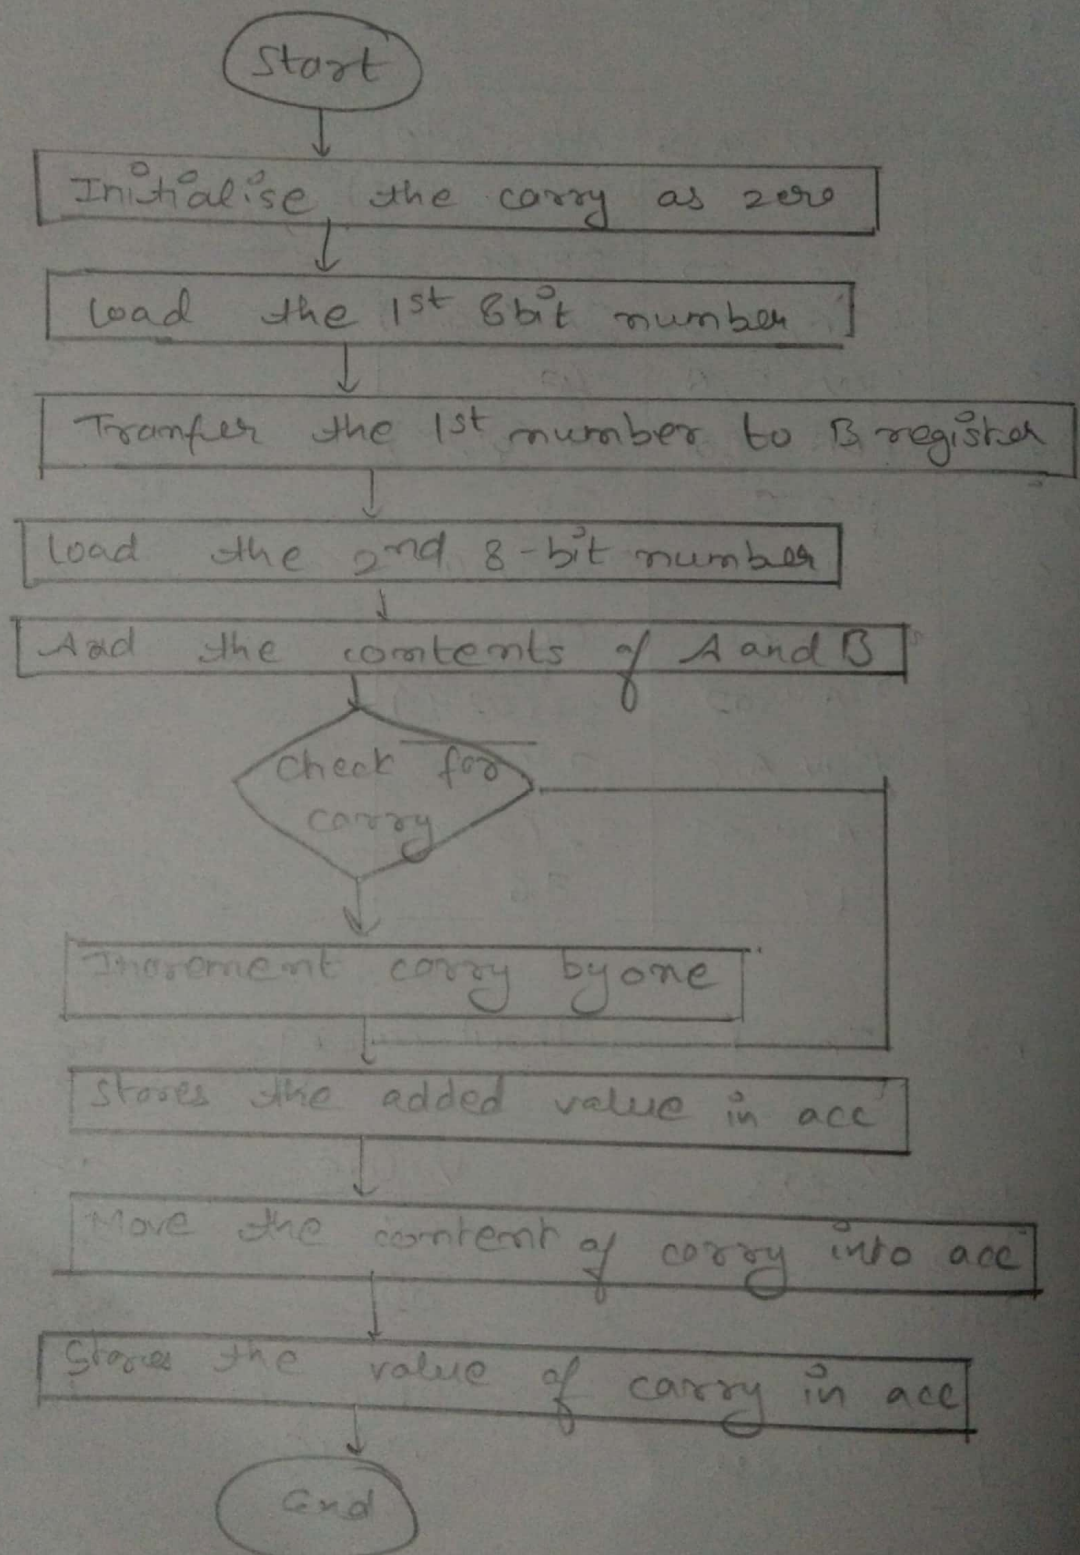 Start
Initialise the carry as zero
Load the 1st 8bit number
Tranfer the 1st number to B register
Load the 2nd 8-bit number
Add the contents of A and B
Check for
carry
Increment carry by one
Stores the added value in acc
Move the content of carry into acc
Stores the value of carry in acc
End